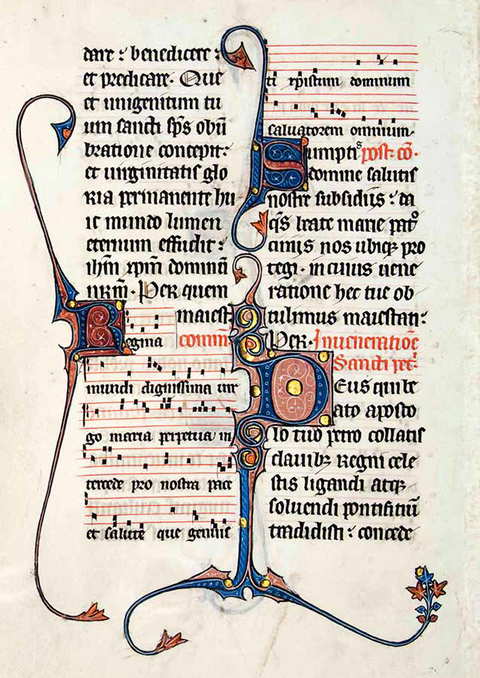 dare : benedicere :
et predicare. Que
et unigenitum tu
um sancti sp̄s obū
bratione concepit :
et uirginitatis glo
ria permanente hu
ic mundo lumen
eternum effudit :
ih̄m xp̄m dominū
nr̄m. Per quem
maiest
Regina com̄
mundi dignissima uir
go maria perpetua in
tercede pro nostra pace
et salute que genuis
ti xpistum dominum
saluatorem omnium.
Sumptis post cō.
domine salutis
nostre subsidiis : da
q̄s beate marie pat
cinus nos ubiq̄ pro
tegi. in cuius uene
ratione hec tue ob
tulimus maiestati :
Per. In ueneratione
Sancti pet̄.
Deus qui be
ato aposto
lo tuo petro collatis
clauibꝫ regni cele
stis ligandi atqꝫ
soluendi pontificiū
tradidisti : concede